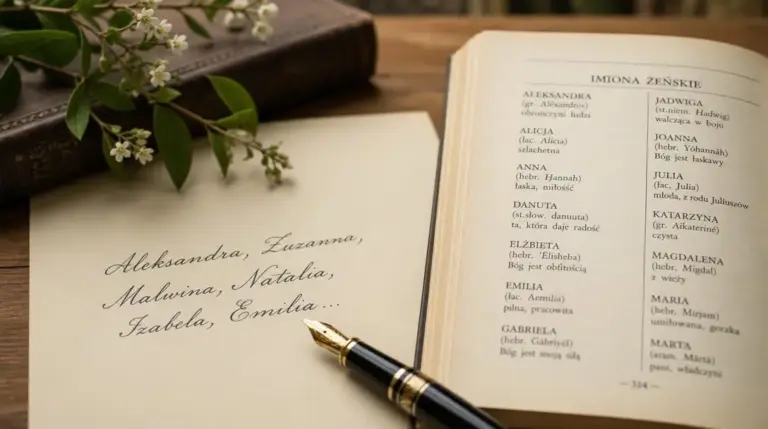 Aleksandra, Zuzanna,
Malwina, Natalia,
Izabela, Emilia...
IMIONA ŻEŃSKIE
ALEKSANDRA
(gr. Aléxandros)
obrończyni ludzi
ALICJA
(łac. Alicia)
szlachetna
ANNA
(hebr. Hannah)
łaska, miłość
DANUTA
(st.słow. danuuta)
ta, która daje radość
ELŻBIETA
(hebr. 'Elisheba)
Bóg jest obfitością
EMILIA
(łac. Aemilia)
pilna, pracowita
GABRIELA
(hebr. Gabriyél)
Bóg jest moją siłą
JADWIGA
(st.niem. Hadwig)
walcząca w boju
JOANNA
(hebr. Yóhannáh)
Bóg jest łaskawy
JULIA
(łac. Julia)
młoda, z rodu Juliuszów
KATARZYNA
(gr. Aikateriné)
czysta
MAGDALENA
(hebr. Migdal)
z wieży
MARIA
(hebr. Mirjam)
umiłowana, gorzka
MARTA
(aram. Mārtā)
pani, władczyni
— 314 —